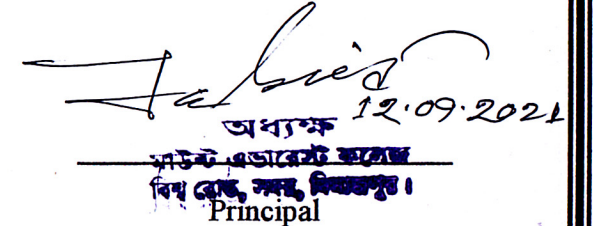 12.09.2021
অধ্যক্ষ
মাউন্ট এভারেস্ট কলেজ
বিশ্ব রোড, সদর, দিনাজপুর।
Principal